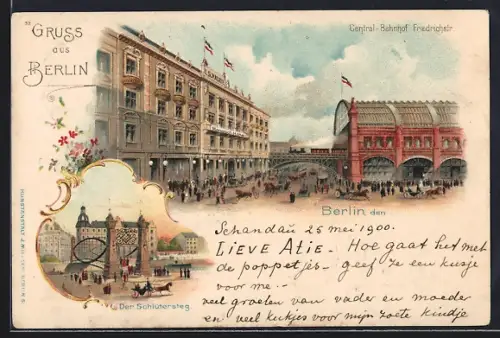 GRUSS
aus
BERLIN
Central-Bahnhof Friedrichstr.
Berlin, den
Schandau 25 mei 1900.
LIEVE ATIE. Hoe gaat het met
de poppetjes - geef ze een kusje
voor me. -
veel groeten van vader en moeder
en veel kusjes voor mijn zoete kindje
Der Schlütersteg.